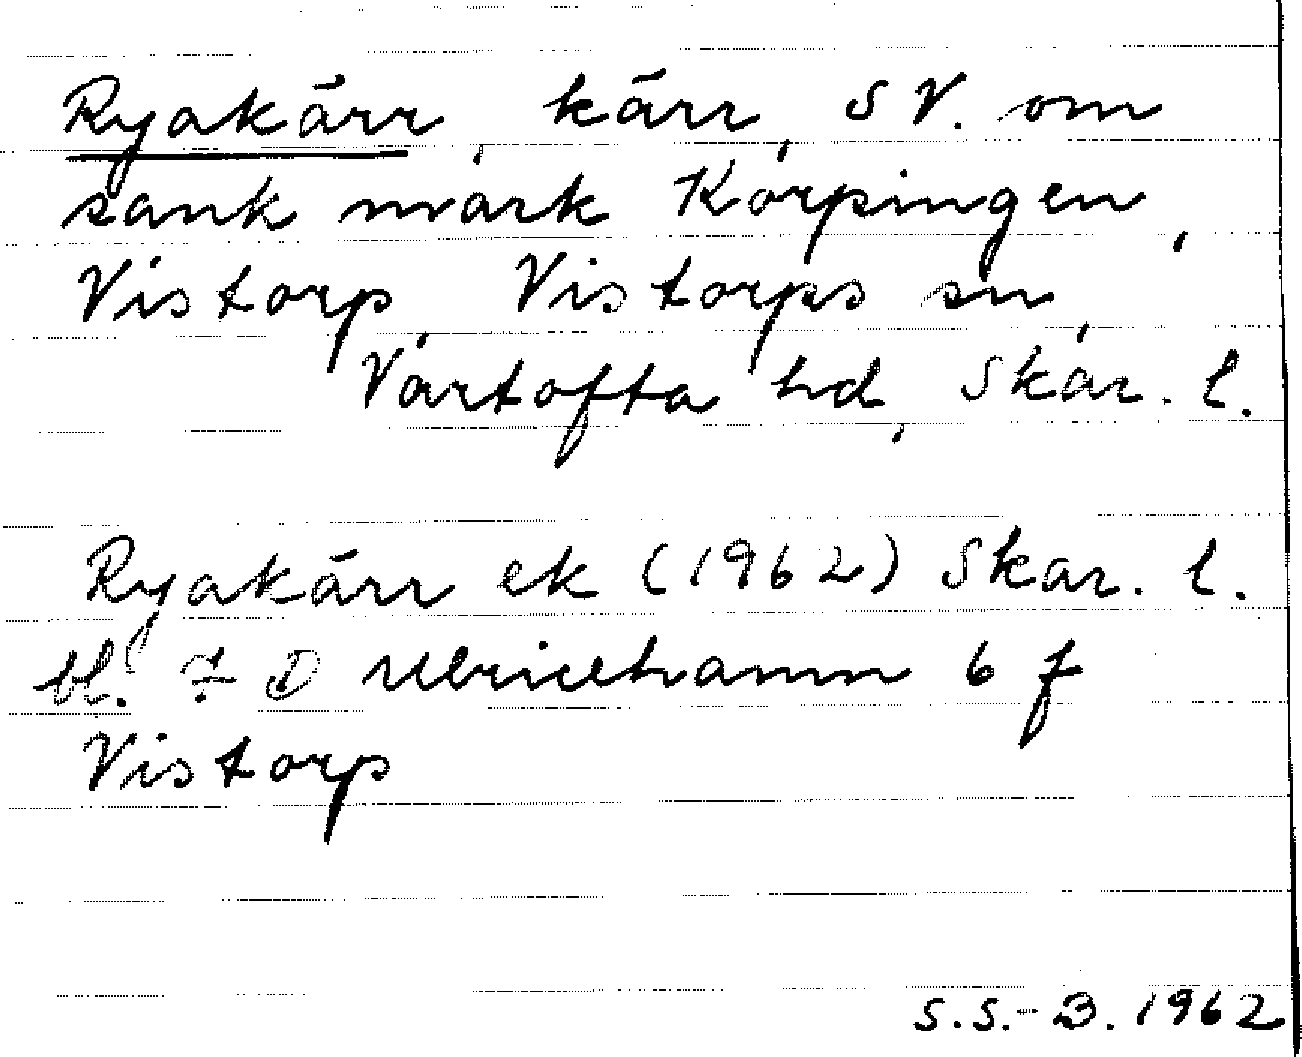 Ryakärr, kärr, SV. om
sank mark Korpingen,
Vistorp, Vistorps sn,
Vartofta hd, Skar. l.
Ryakärr ek (1962) Skar. l.
bl. 7 D Ulricehamn 6 f
Vistorp
S.S.-B. 1962